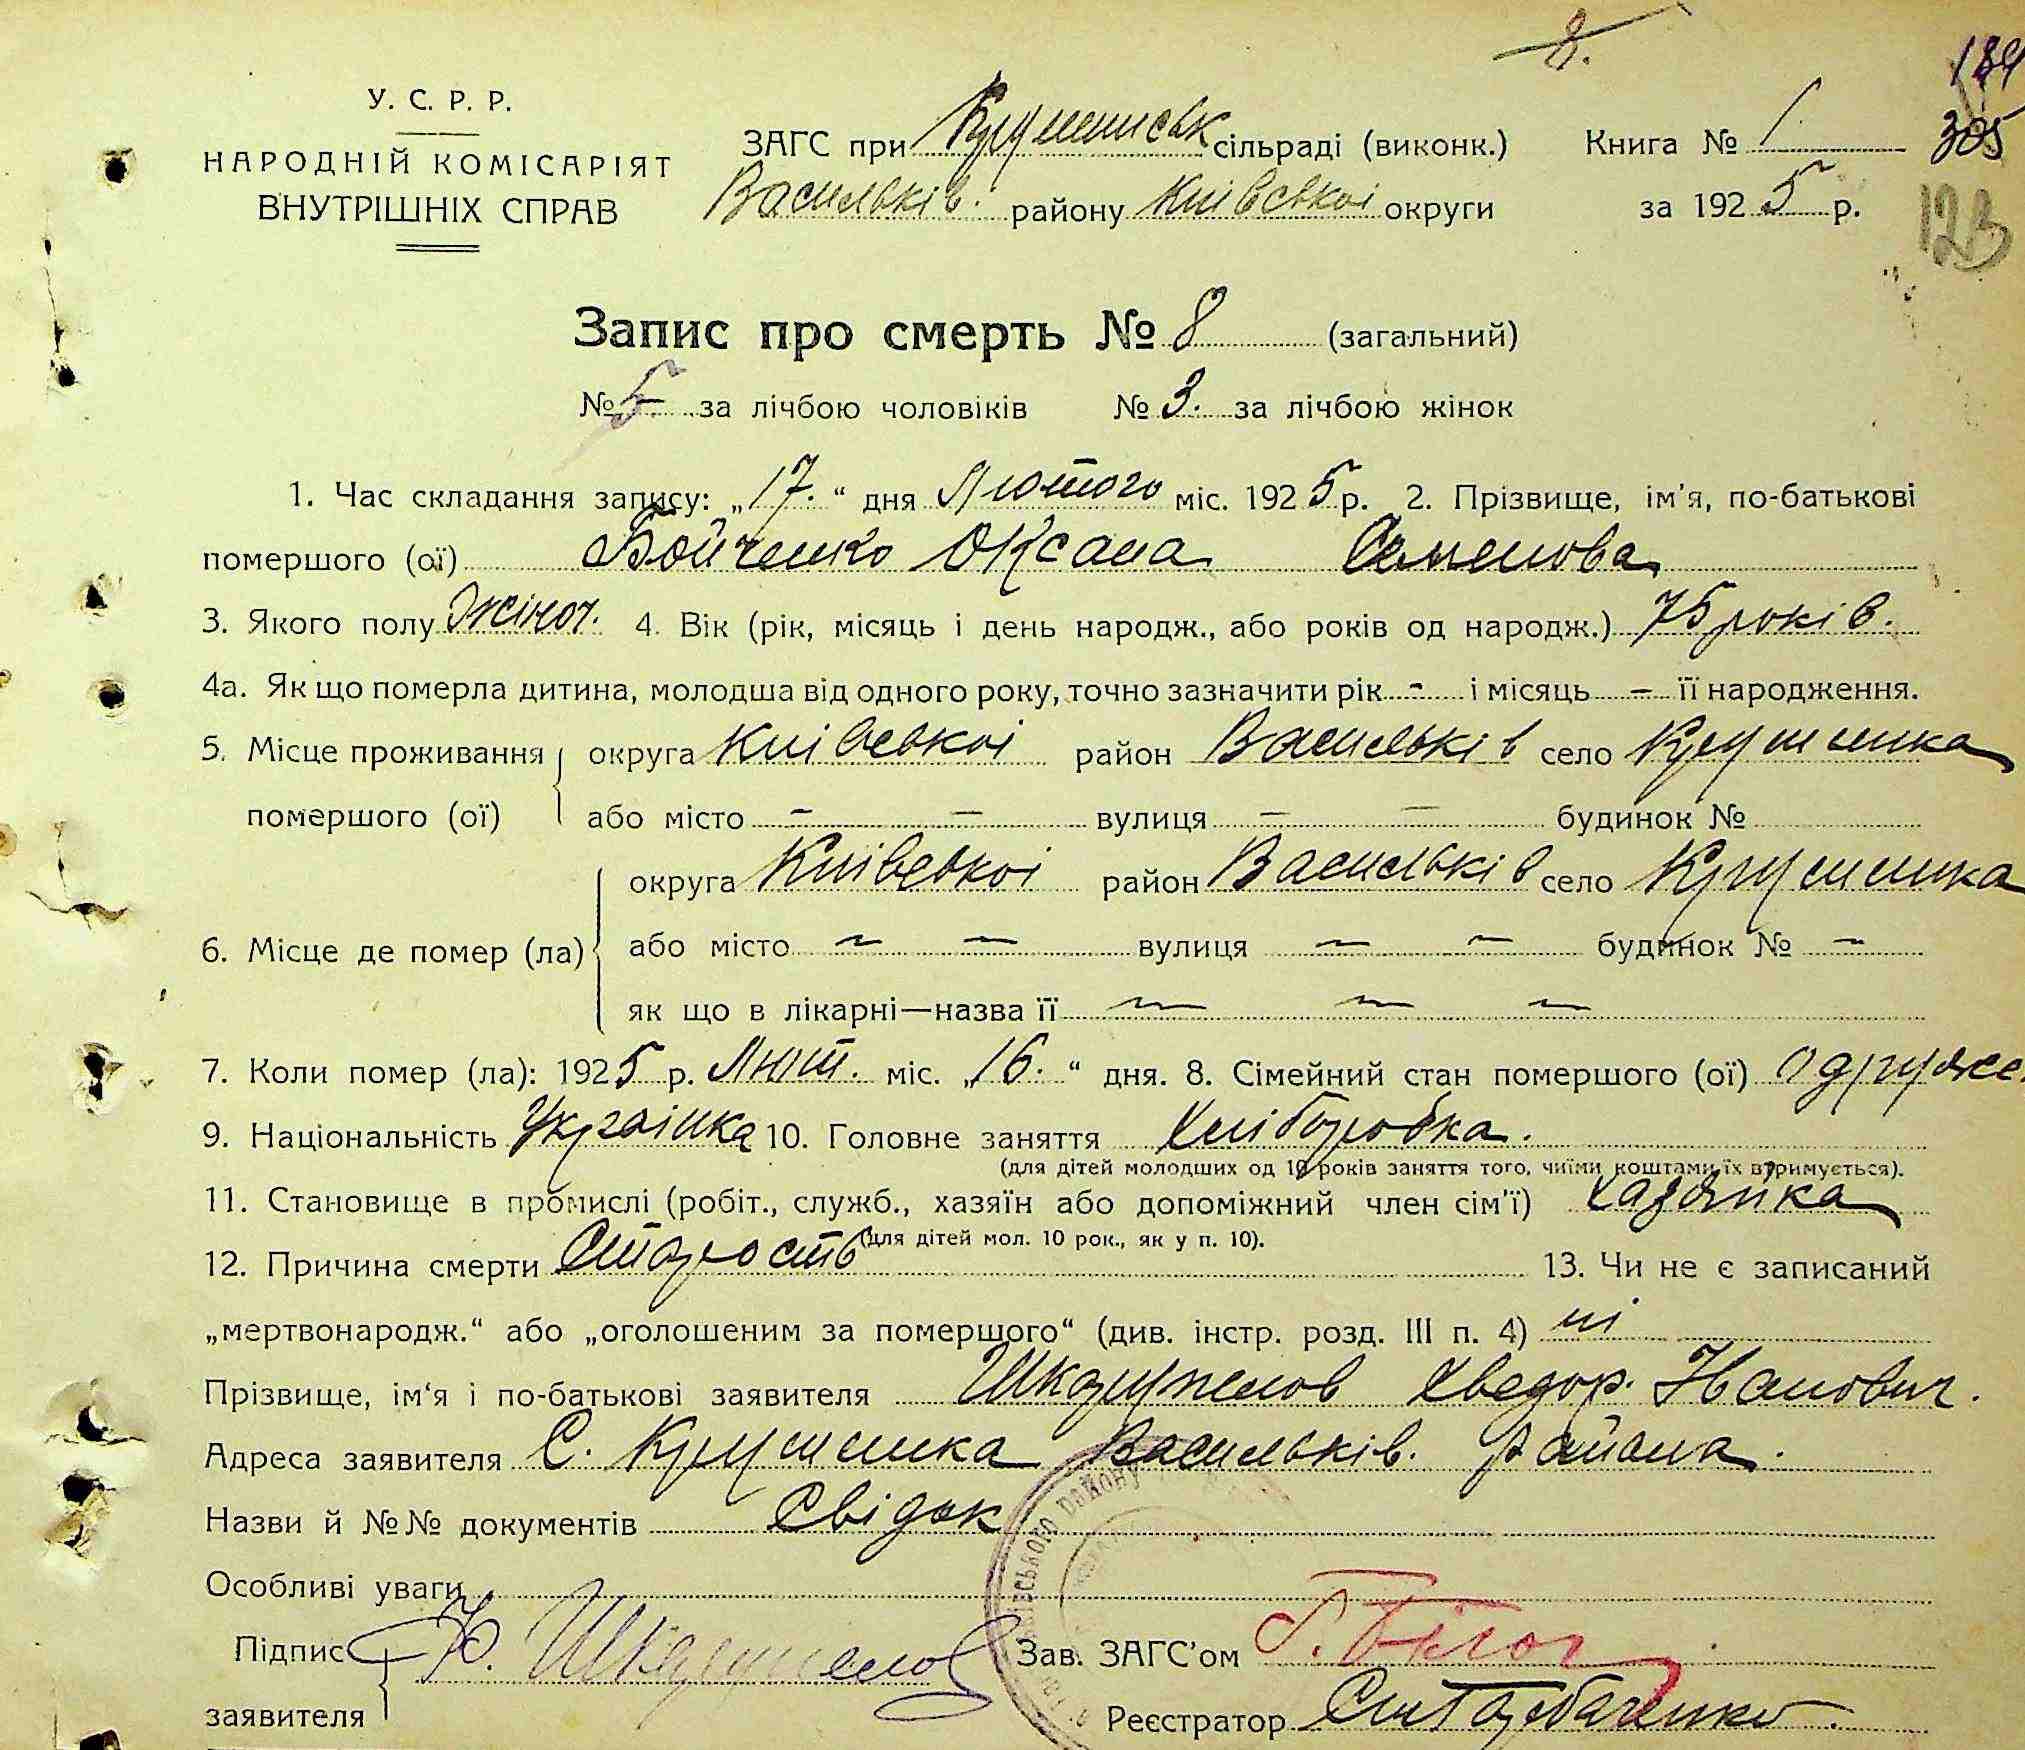 8.
У. С. Р. Р.
НАРОДНІЙ КОМІСАРІЯТ
ВНУТРІШНІХ СПРАВ
ЗАГС при Крушинськ сільраді (виконк.) Книга № 1.
Васильків. району Київської округи за 1925 р.
305
123
Запис про смерть № 8 (загальний)
№ 5. за лічбою чоловіків № 3. за лічбою жінок
1. Час складання запису: „17.“ дня Лютого міс. 1925 р. 2. Прізвище, ім'я, по-батькові
помершого (ої) Бойченко Оксана Семенова
3. Якого полу жіноч. 4. Вік (рік, місяць і день народж., або років од народж.) 75 років.
4а. Як що померла дитина, молодша від одного року, точно зазначити рік - і місяць - її народження.
5. Місце проживання округа Київської район Васильків село Крушинка
помершого (ої) або місто - - вулиця - - будинок №
округа Київської район Васильків село Крушинка
6. Місце де помер (ла) або місто - - вулиця - - будинок № -
як що в лікарні—назва її - - -
7. Коли помер (ла): 1925 р. Лют. міс. „16.“ дня. 8. Сімейний стан помершого (ої) одруже.
9. Національність Українка 10. Головне заняття Хліборобка.
(для дітей молодших од 10 років заняття того, чиїми коштами їх втримується).
11. Становище в промислі (робіт., служб., хазяїн або допоміжний член сім'ї) хазяйка
(для дітей мол. 10 рок., як у п. 10).
12. Причина смерти Старость 13. Чи не є записаний
„мертвонародж.“ або „оголошеним за помершого“ (див. інстр. розд. III п. 4) ні
Прізвище, ім'я і по-батькові заявителя Хведор. Иванович.
Адреса заявителя С. Крушинка Васильків. района.
Назви й №№ документів Свідок
Особливі уваги
Підпис
заявителя
Зав. ЗАГС'ом
Реєстратор
району